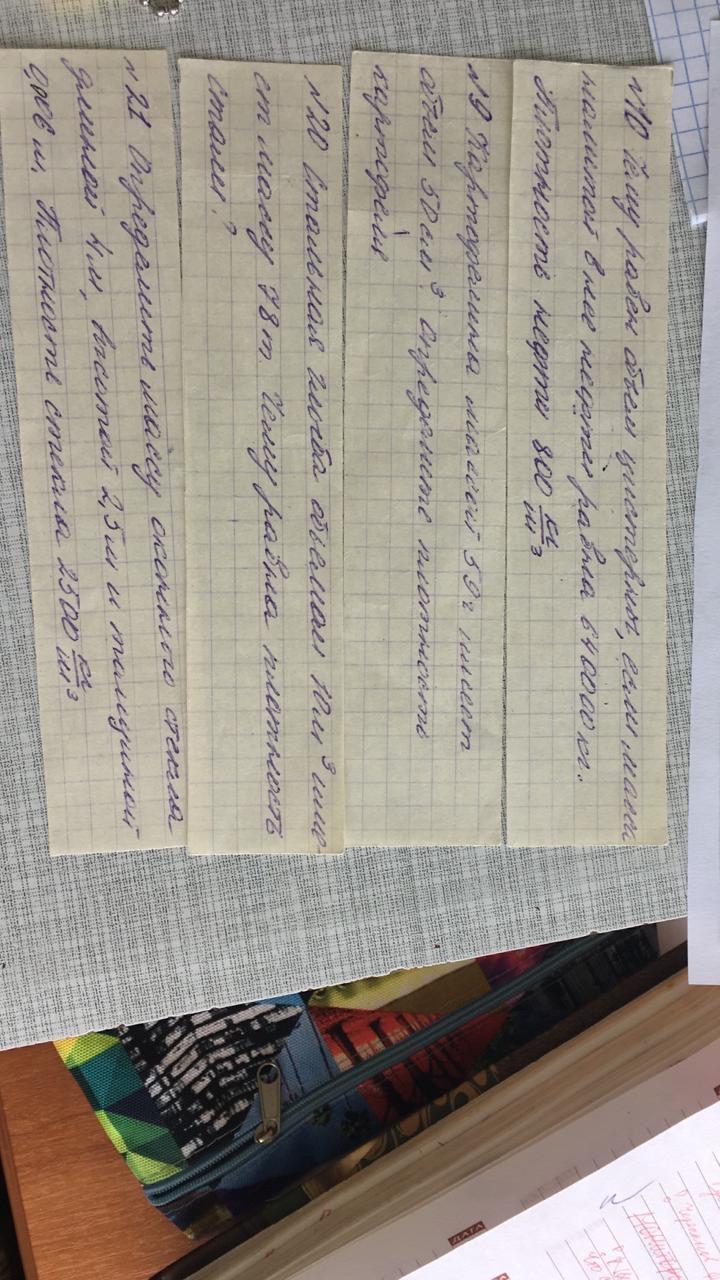 №10 Чему равен объем цистерны, если масса
налитой в нее нефти равна 64000 кг.
Плотность нефти 800 кг/м³
№9 Картофелина массой 59г имеет
объем 50 см³. определите плотность
картофеля
№20 Стальная глыба объемом 10м³ име-
ет массу 78т. Чему равна плотность
стали?
№21 Определить массу оконного стекла
длиной 4м, высотой 2,5м и толщиной
0,006 м, Плотность стекла 2500 кг/м³
ДАТА